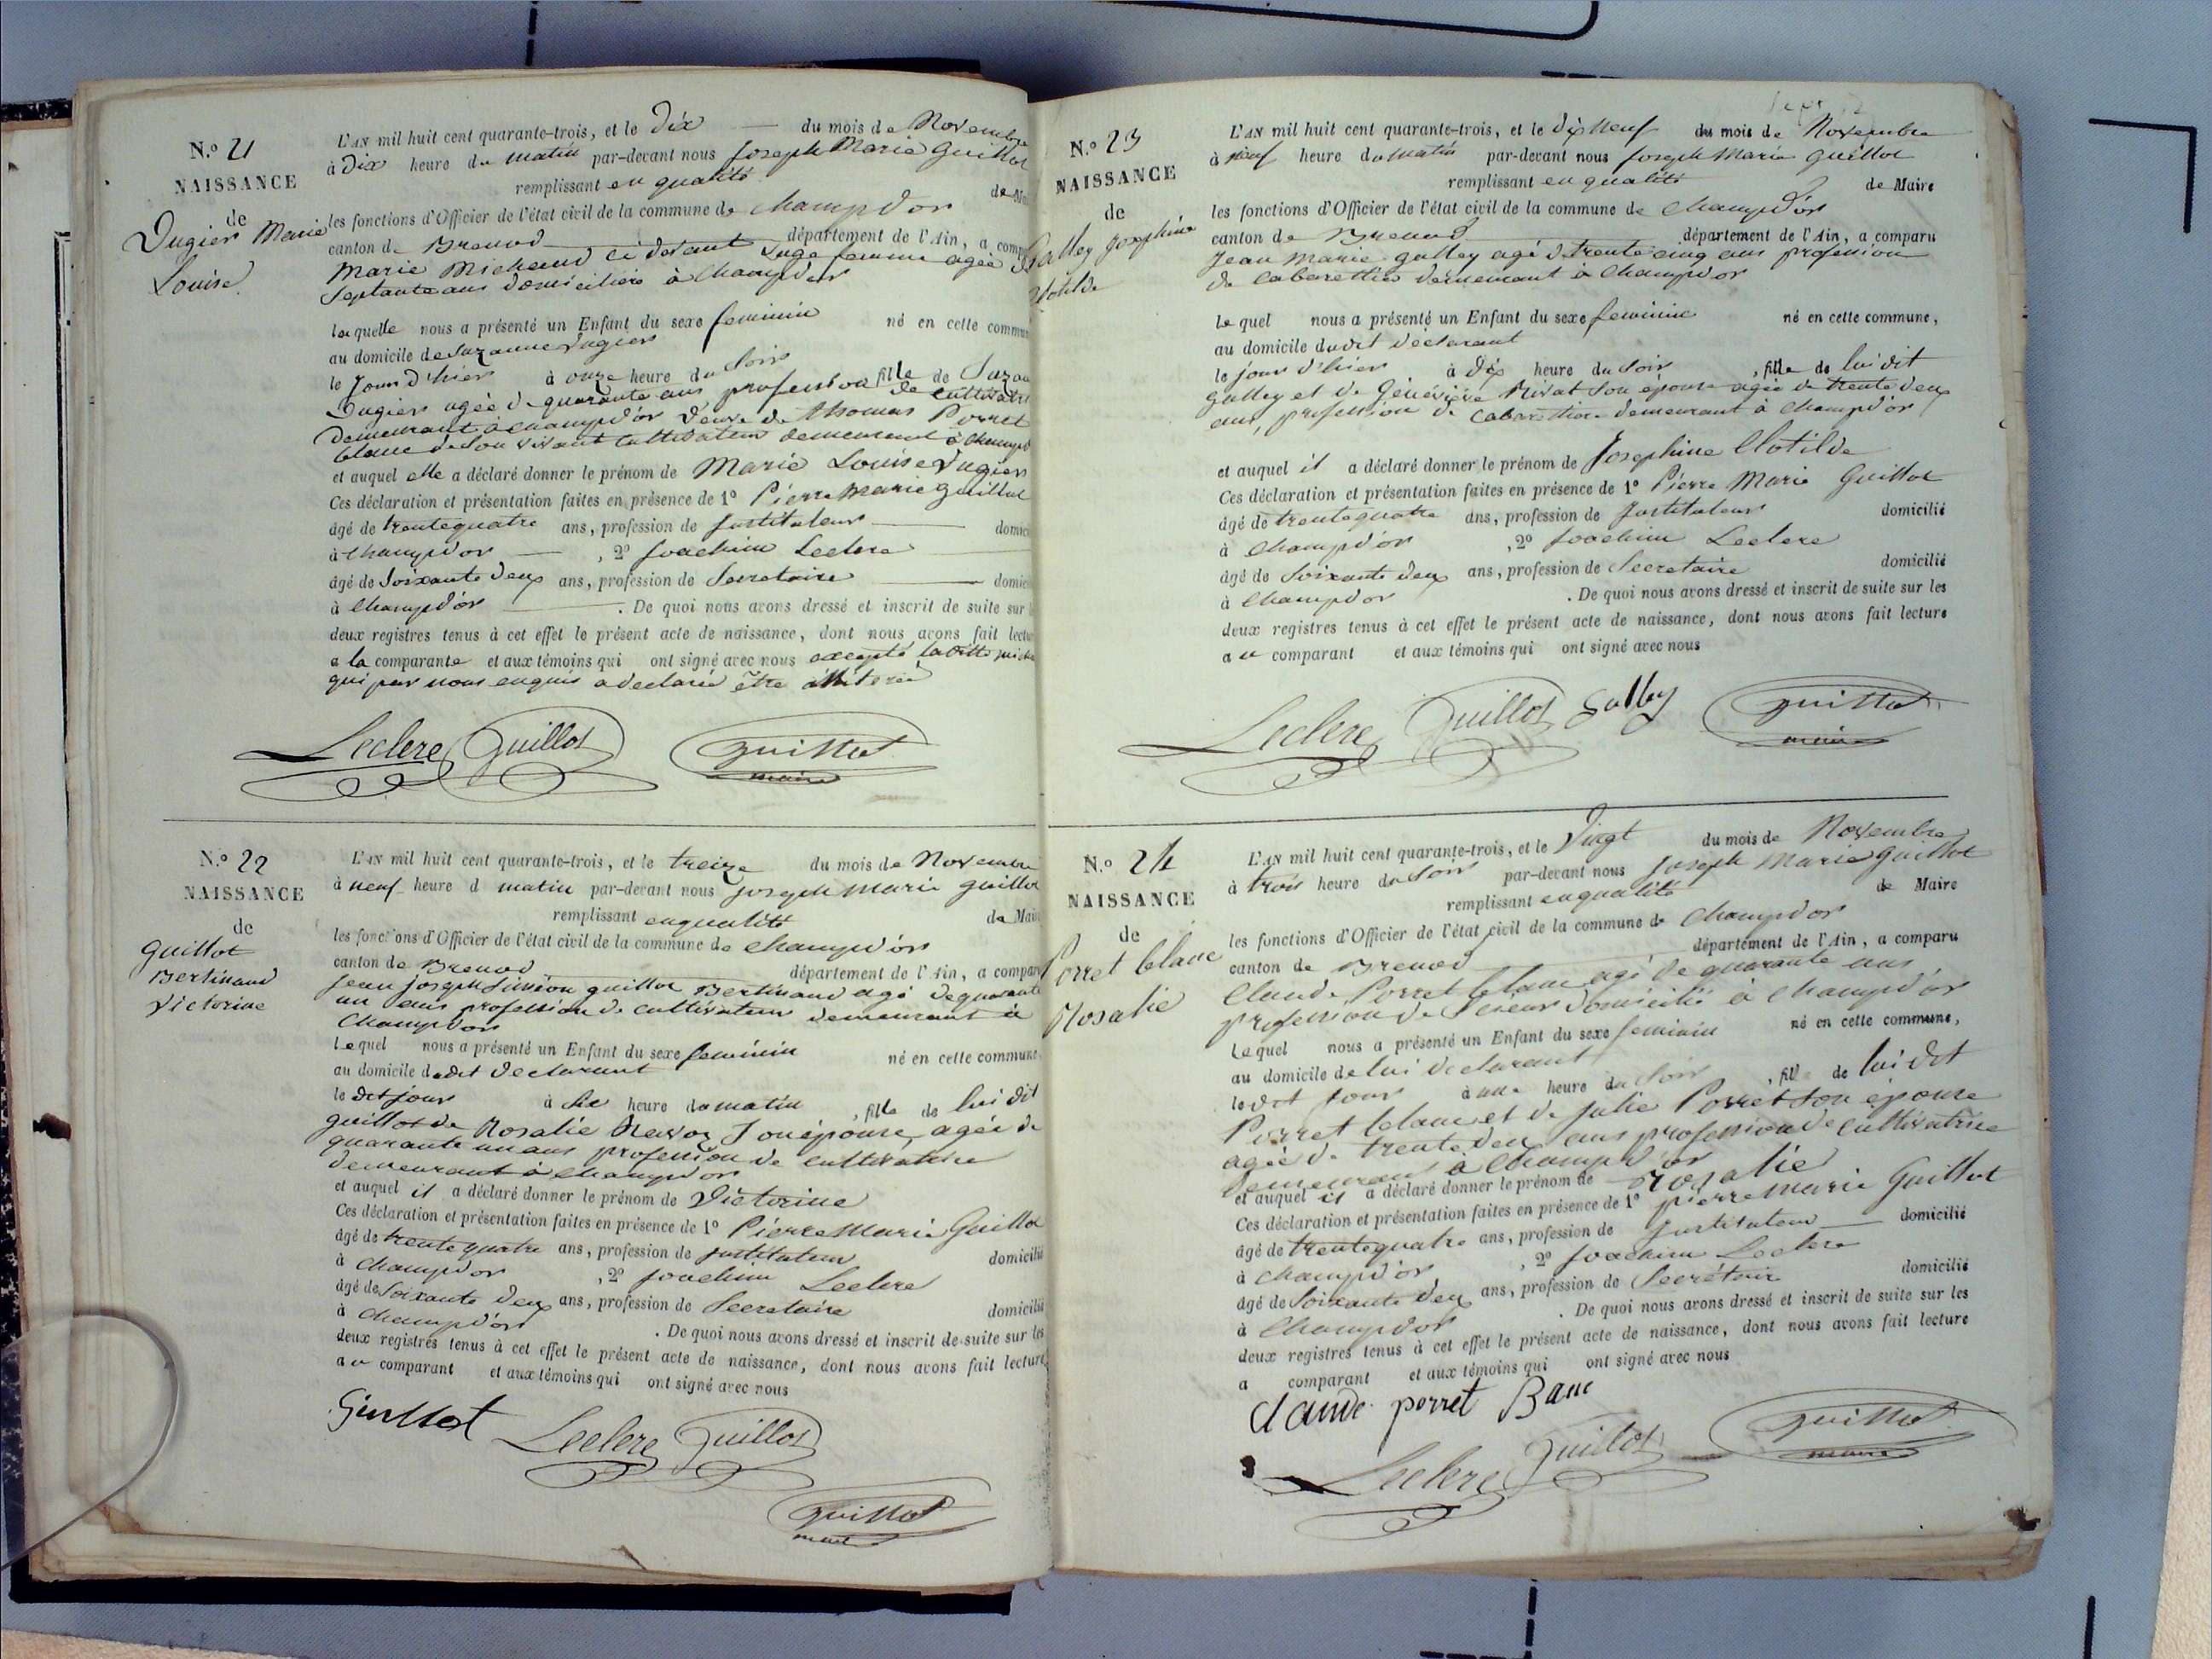 N.º 21
NAISSANCE
de
Dugier Marie
Louise.
L'AN mil huit cent quarante-trois, et le Dix du mois de Novembre
à Dix heure du matin par-devant nous Joseph Marie Guillot
remplissant en qualité de Mai
les fonctions d'Officier de l'état civil de la commune de Champd'or
canton de Brenod département de l'Ain, a comp
Marie Michaud ci devant Sage femme agée de
Septante ans domiciliée à Champd'or
laquelle nous a présenté un Enfant du sexe feminin né en cette commun
au domicile de Suzanne Dugier
le Jour d'hier à onze heure du Soir fille de Suzan
Dugier agée de quarante ans profession de cultivatri
demeurant à champd'or veuve de Thomas Porret
blanc de Son vivant Cultivateur demeurant à Champd
et auquel elle a déclaré donner le prénom de Marie Louise Dugier
Ces déclaration et présentation faites en présence de 1º Pierre Marie Guillot
âgé de trente quatre ans, profession de Instituteur domici
à Champd'or , 2º Joachim Leclere
âgé de Soixante deux ans, profession de Secretaire domici
à Champd'or . De quoi nous avons dressé et inscrit de suite sur l
deux registres tenus à cet effet le présent acte de naissance, dont nous avons fait lectur
a la comparante et aux témoins qui ont signé avec nous excepté laditte
qui par nous enquis a declarée être illiterée
Leclere Guillot Guillot
maire
N.º 22
NAISSANCE
de
Guillot
Bertinand
Victorine
L'AN mil huit cent quarante-trois, et le treize du mois de Novembre
à neuf heure d matin par-devant nous Joseph Marie Guillot
remplissant en qualité de Mair
les fonctions d'Officier de l'état civil de la commune de Champd'or
canton de Brenod département de l'Ain, a compar
Jean Joseph Simeon guillot Bertinand agé de quarante
un ans profession de cultivateur demeurant à
Champd'or
Lequel nous a présenté un Enfant du sexe feminin né en cette commune
au domicile dudit Declarant
le dit jour à Six heure du matin , fille de lui dit
guillot de Rosalie Son épouse, agée de
quarante un ans profession de cultivatrice
demeurant à Champd'or
et auquel il a déclaré donner le prénom de Victorine
Ces déclaration et présentation faites en présence de 1º Pierre Marie Guillot
âgé de trente quatre ans, profession de Instituteur domicilié
à Champd'or , 2º Joachim Leclere
âgé de Soixante deux ans, profession de Secretaire domicilié
à Champd'or . De quoi nous avons dressé et inscrit de suite sur les
deux registres tenus à cet effet le présent acte de naissance, dont nous avons fait lecture
au comparant et aux témoins qui ont signé avec nous
Guillot Leclere Guillot
Guillot
maire
N.º 23
NAISSANCE
de
Galley Josephine
Clotilde
L'AN mil huit cent quarante-trois, et le dix Neuf du mois de Novembre
à neuf heure du matin par-devant nous Joseph Marie Guillot
remplissant en qualité de Maire
les fonctions d'Officier de l'état civil de la commune de Champd'or
canton de Brenod département de l'Ain, a comparu
Jean Marie galley agé de trente cinq ans profession
de Cabarettier demeurant à Champd'or
Lequel nous a présenté un Enfant du sexe feminin né en cette commune,
au domicile dudit Declarant
le jour d'hier à Dix heure du Soir , fille de lui dit
galley et de Généviève Rivat Son épouse agée de trente deux
ans, profession de Cabarettiere demeurant à Champd'or
et auquel il a déclaré donner le prénom de Josephine Clotilde
Ces déclaration et présentation faites en présence de 1º Pierre Marie Guillot
âgé de trente quatre ans, profession de Instituteur domicilié
à Champd'or , 2º Joachim Leclere
âgé de Soixante deux ans, profession de Secretaire domicilié
à Champd'or . De quoi nous avons dressé et inscrit de suite sur les
deux registres tenus à cet effet le présent acte de naissance, dont nous avons fait lecture
au comparant et aux témoins qui ont signé avec nous
Leclere Guillot Galley Guillot
maire
N.º 24
NAISSANCE
de
Porret blanc
Rosalie
L'AN mil huit cent quarante-trois, et le Vingt du mois de Novembre
à trois heure du Soir par-devant nous Joseph Marie Guillot
remplissant en qualité de Maire
les fonctions d'Officier de l'état civil de la commune de Champd'or
canton de Brenod département de l'Ain, a comparu
Claude Porret blanc agé de quarante ans
profession de Scieur domicilié à Champd'or
Lequel nous a présenté un Enfant du sexe feminin né en cette commune,
au domicile de lui declarant
le dit jour à une heure du Soir , fille de lui dit
Porret blanc et de Julie Porret Son épouse
agée de trente deux ans profession de cultivatrice
demeurant à Champd'or
et auquel il a déclaré donner le prénom de Rosalie
Ces déclaration et présentation faites en présence de 1º pierre Marie Guillot
âgé de trente quatre ans, profession de Instituteur domicilié
à Champd'or , 2º Joachim Leclere
âgé de Soixante deux ans, profession de Secrétaire domicilié
à Champd'or . De quoi nous avons dressé et inscrit de suite sur les
deux registres tenus à cet effet le présent acte de naissance, dont nous avons fait lecture
a comparant et aux témoins qui ont signé avec nous
claude perret Banc
Leclere Guillot Guillot
maire